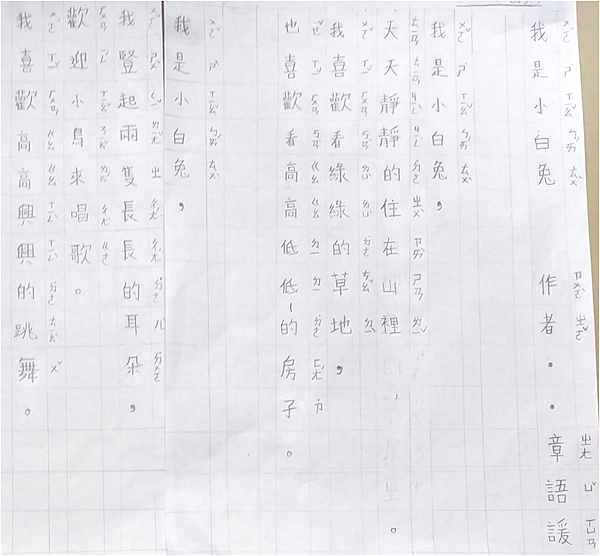 我是小白兔 作者：章語諼
我是小白兔，
天天靜靜的住在山裡。
我喜歡看綠綠的草地，
也喜歡看高高低低的房子。
我是小白兔，
我豎起兩隻長長的耳朵，
歡迎小鳥來唱歌。
我喜歡高高興興的跳舞。